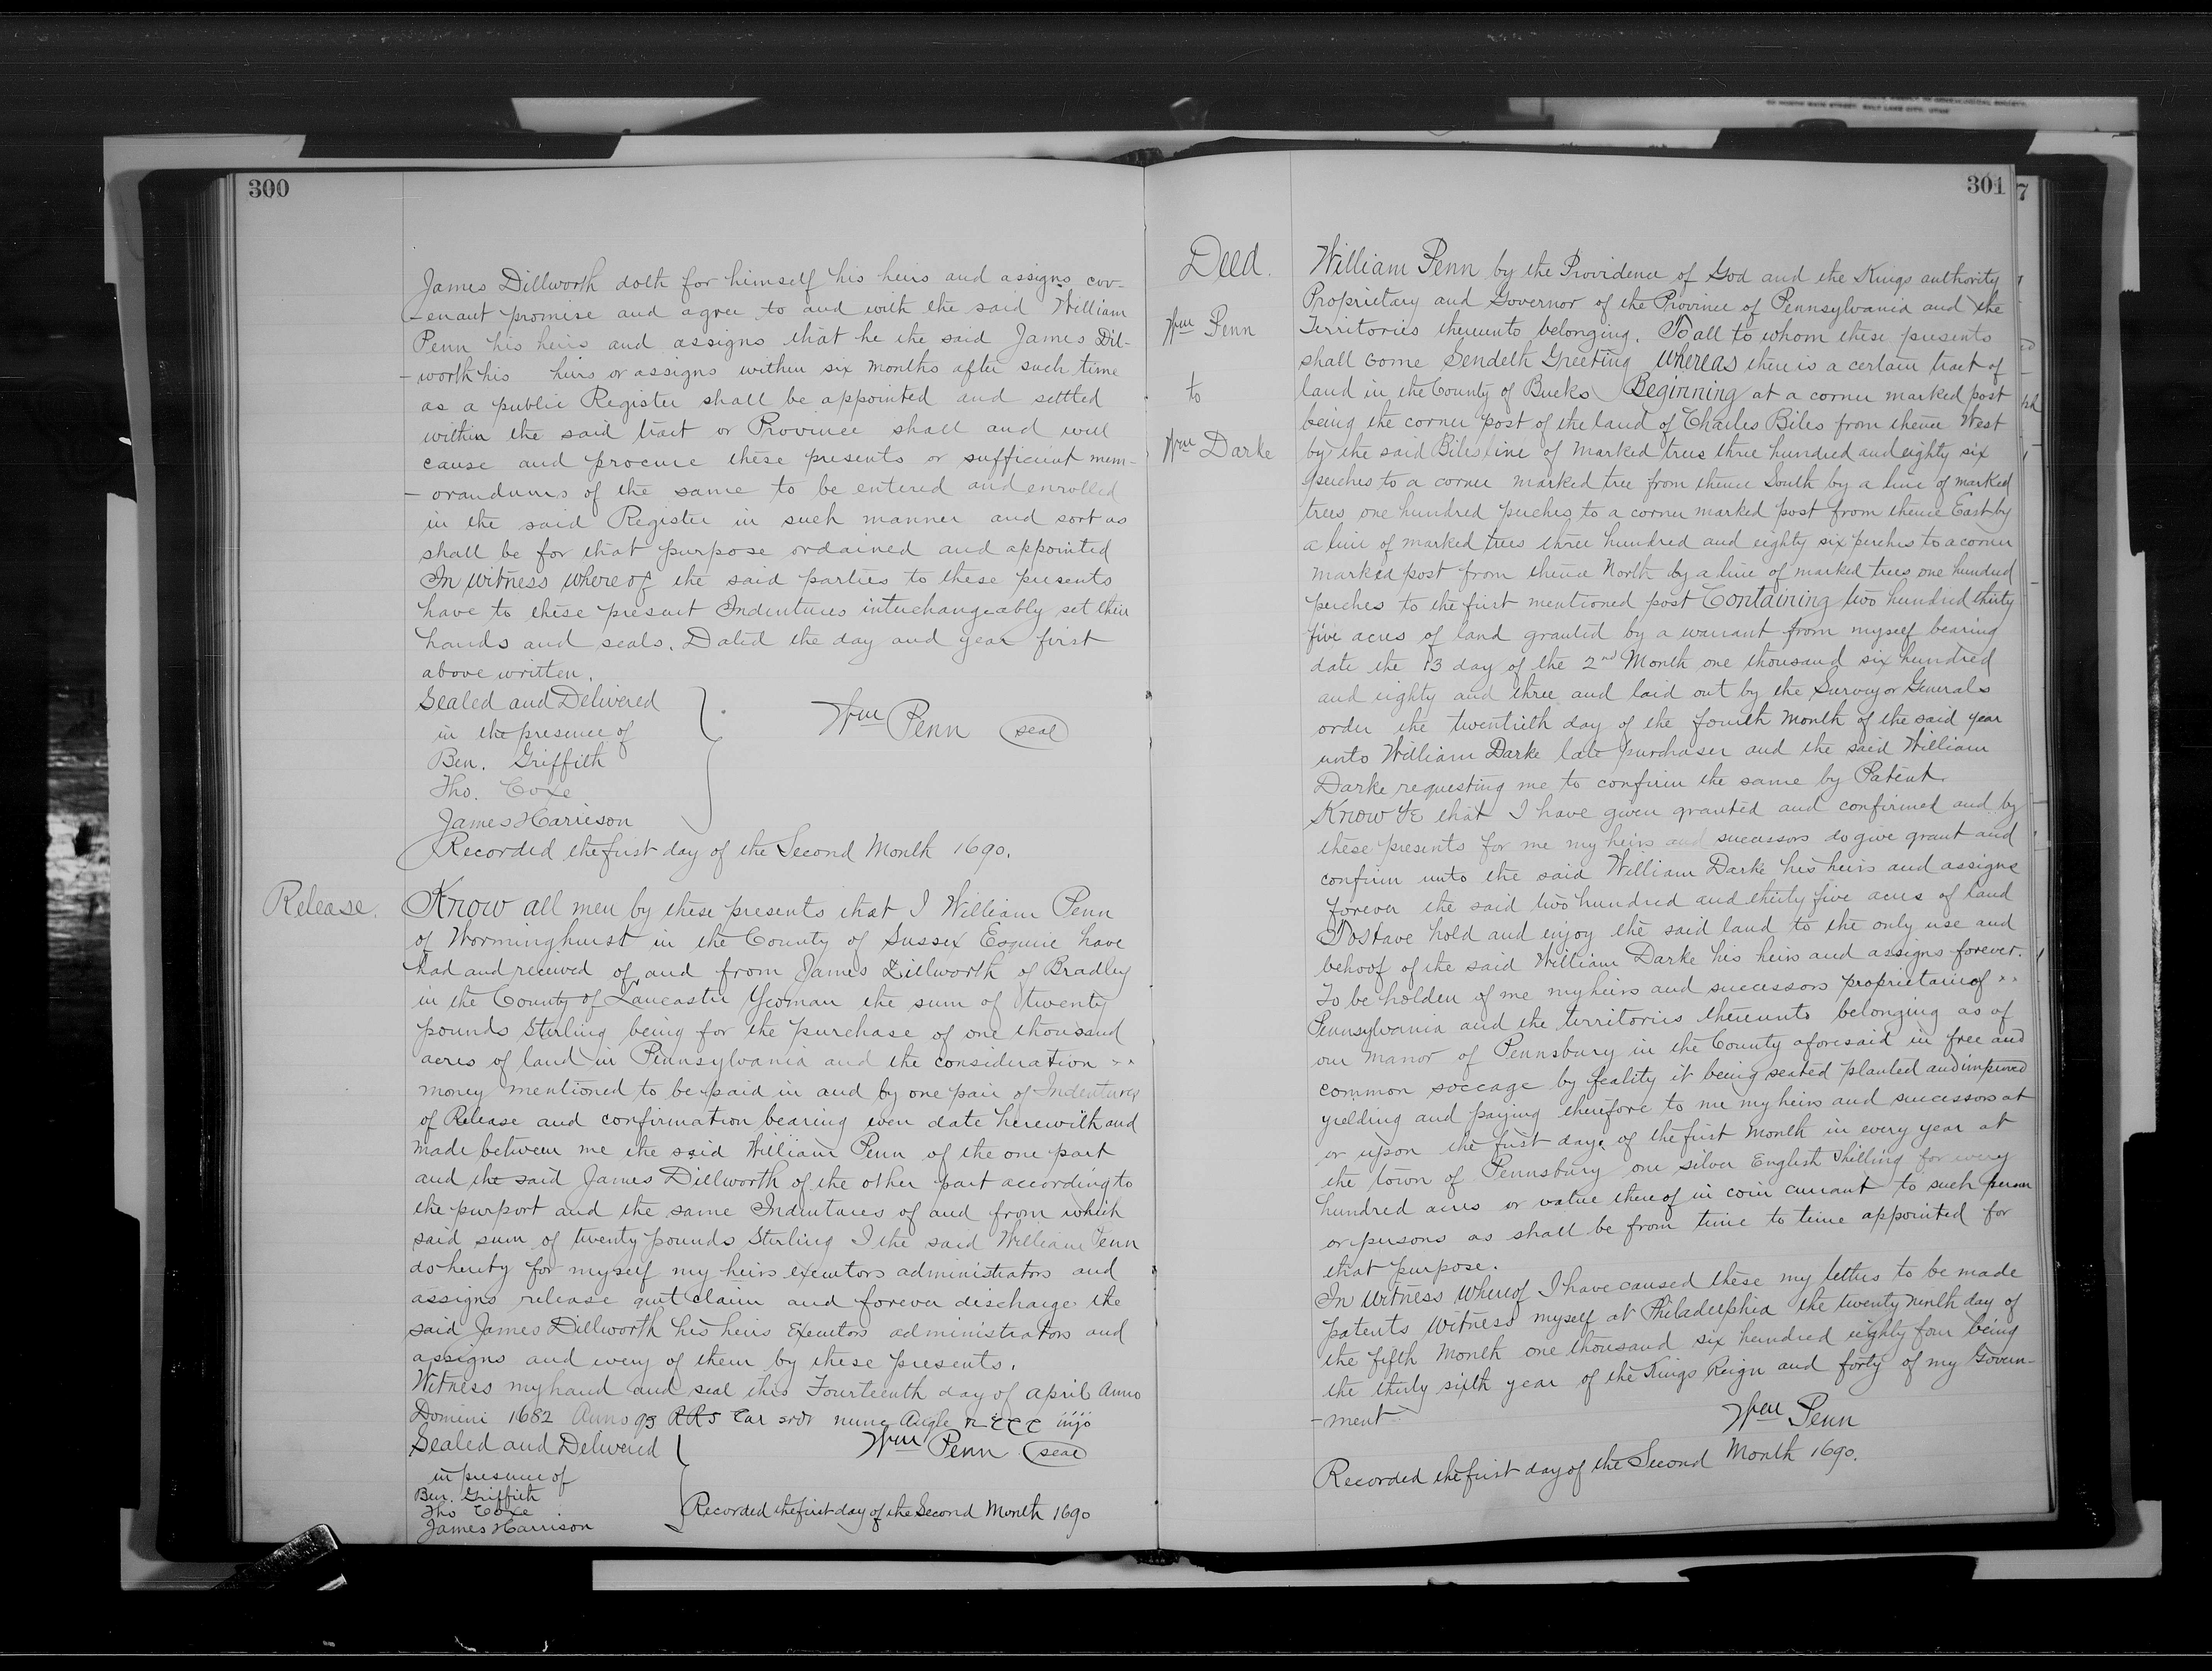 300
James Dillworth doth for himself his heirs and assigns cov-
-enant promise and agree to and with the said William
Penn his heirs and assigns that he the said James Dil-
-worth his heirs or assigns within six months after such time
as a public Register shall be appointed and settled
within the said tract or Province shall and will
cause and procure these presents or sufficient mem-
-orandums of the same to be entered and enrolled
in the said Register in such manner and sort as
shall be for that purpose ordained and appointed
In witness whereof the said parties to these presents
have to these present Indentures interchangeably set their
hands and seals. Dated the day and year first
above written.
Sealed and Delivered
in the presence of
Wm Penn (seal)
Ben. Griffith
Tho. Coxe
James Harrison
Recorded the first day of the Second Month 1690.
Release.
Know all men by these presents that I William Penn
of Worminghurst in the County of Sussex Esquire have
had and received of and from James Dillworth of Bradley
in the County of Lancaster Yeoman the sum of twenty
pounds Sterling being for the purchase of one thousand
acres of land in Pennsylvania and the consideration "
money mentioned to be paid in and by one pair of Indentures
of Release and confirmation bearing even date herewith and
made between me the said William Penn of the one part
and the said James Dillworth of the other part according to
the purport and the same Indentures of and from which
said sum of twenty pounds Sterling I the said William Penn
do hereby for myself my heirs executors administrators and
assigns release quit claim and forever discharge the
said James Dillworth his heirs Executors administrators and
assigns and every of them by these presents.
Witness my hand and seal this Fourteenth day of April Anno
Domini 1682 Anno RRS Car nunc Angle
Sealed and Delivered
Wm Penn (seal)
in presence of
Ben. Griffith
Tho Coxe
James Harrison
Recorded the first day of the Second Month 1690
301
7
Deed.
Wm Penn
to
Wm Darke
William Penn by the Providence of God and the Kings authority
Proprietary and Governor of the Province of Pennsylvania and the
Territories thereunto belonging. To all to whom these presents
shall come Sendeth Greeting Whereas there is a certain tract of
land in the County of Bucks Beginning at a corner marked post
being the corner post of the land of Charles Biles from thence West
by the said Biles line of marked trees three hundred and eighty six
perches to a corner marked tree from thence South by a line of marked
trees one hundred perches to a corner marked post from thence East by
a line of marked trees three hundred and eighty six perches to a corner
marked post from thence North by a line of marked trees one hundred
perches to the first mentioned post Containing two hundred thirty
five acres of land granted by a warrant from myself bearing
date the 13 day of the 2nd Month one thousand six hundred
and eighty and three and laid out by the Surveyor Generals
order the twentieth day of the fourth Month of the said year
unto William Darke late purchaser and the said William
Darke requesting me to confirm the same by Patent.
Know Ye that I have given granted and confirmed and by
these presents for me my heirs and successors do give grant and
confirm unto the said William Darke his heirs and assigns
forever the said two hundred and thirty five acres of land
To Have hold and enjoy the said land to the only use and
behoof of the said William Darke his heirs and assigns forever.
To be holden of me my heirs and successors proprietari of "
Pennsylvania and the territories thereunto belonging as of
our Manor of Pennsbury in the County aforesaid in free and
common soccage by feality it being seated planted and improved
yielding and paying therefore to me my heirs and successors at
or upon the first day of the first Month in every year at
the town of Pennsbury one silver English Shilling for every
hundred acres or value thereof in coin currant to such person
or persons as shall be from time to time appointed for
that purpose.
In Witness Whereof I have caused these my letters to be made
patents Witness myself at Philadelphia the twenty ninth day of
the fifth Month one thousand six hundred eighty four being
the thirty sixth year of the Kings Reign and forty of my Govern-
-ment
Wm Penn
Recorded the first day of the Second Month 1690.